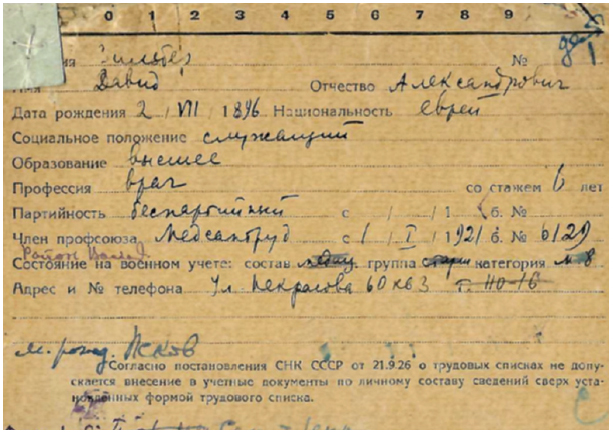 0 1 2 3 4 5 6 7 8 9
Зильбер №
Имя Давид Отчество Александрович
Дата рождения 2 VII 1896 Национальность еврей
Социальное положение служащий
Образование высшее
Профессия врач со стажем 6 лет
Партийность беспартийный с / / 1 б. №
Член профсоюза Медсантруд с 1 / I / 1921 б. № 6129
Район
Состояние на военном учете: состав группа старш категория №8
Адрес и № телефона Ул Некрасова 60 кв 3 т. 110-16
м. рожд. Псков
Согласно постановления СНК СССР от 21.9.26 о трудовых списках не допу-
скается внесение в учетные документы по личному составу сведений сверх уста-
новленных формой трудового списка.